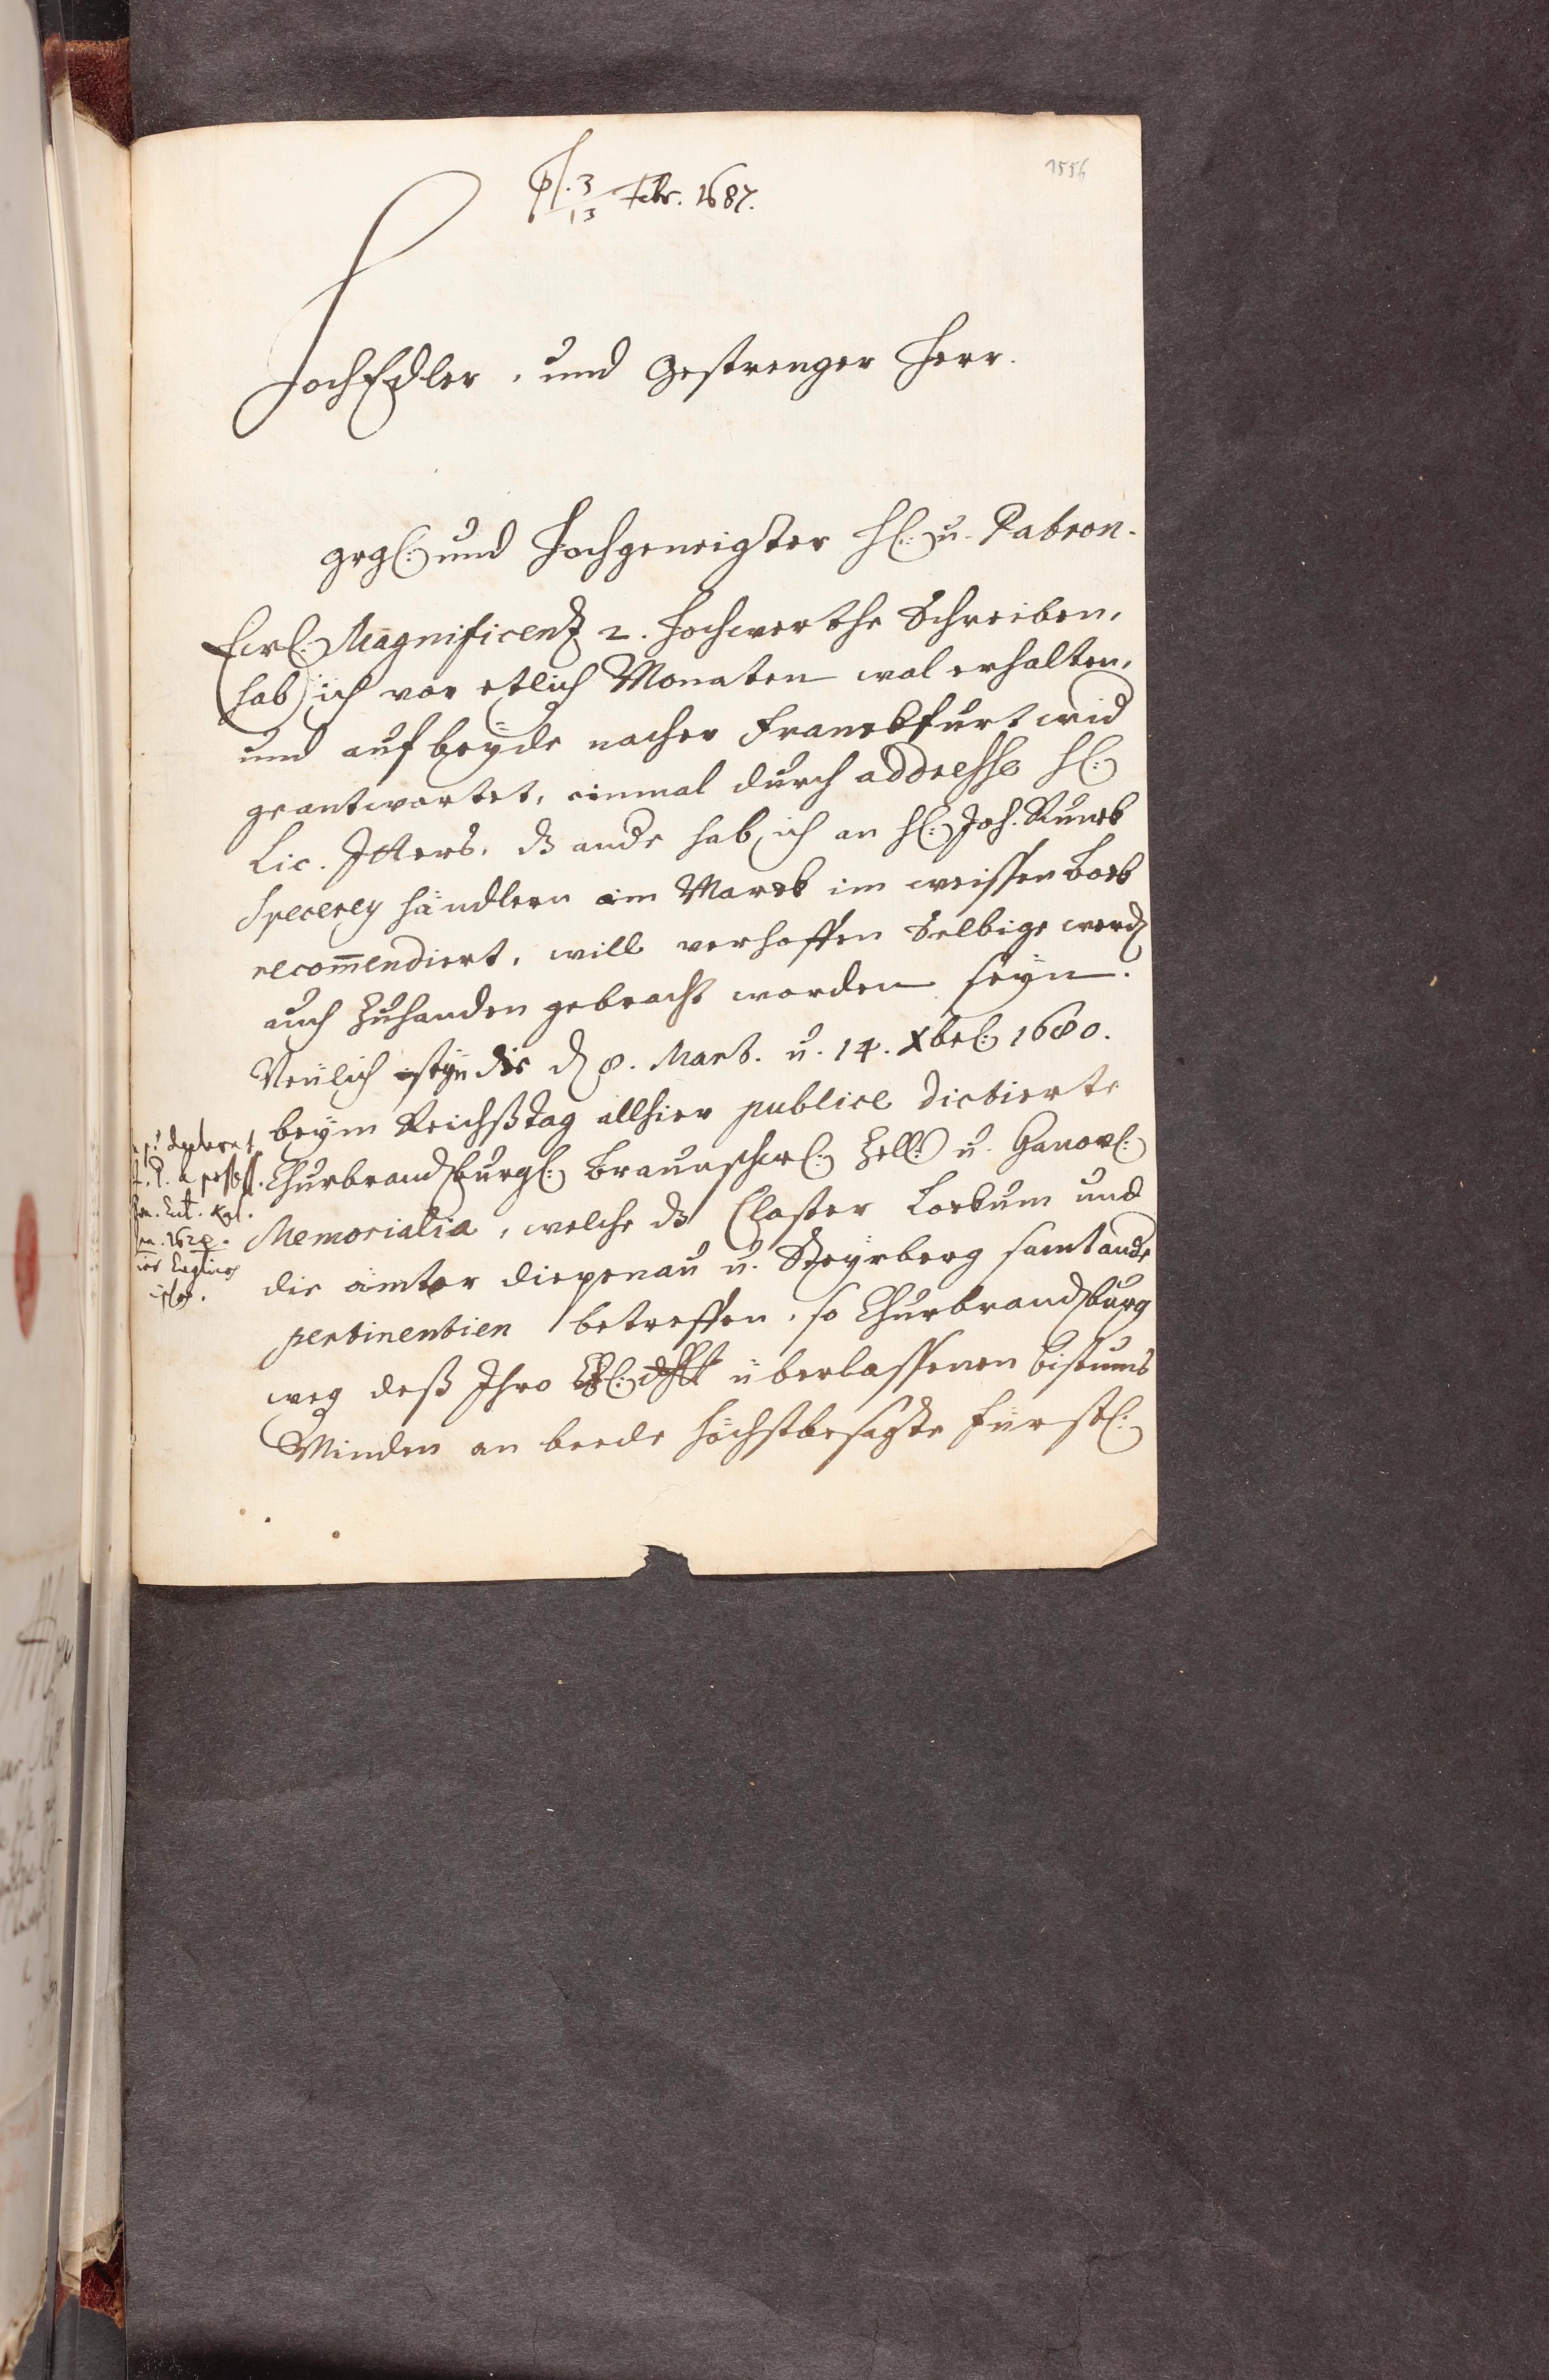 1556
pl. 3/13 Febr. 1687.
HochEdler, und gestrenger Herr.
grgl: und Hochgeneigster Hl: u. Patron.
Ewl: Magnificentz 2. hochwerthe Schreiben,
hab ich vor etlich Monaten wol erhalten,
und auf beÿde nacher Franckfurt wid
geantwortet, einmal durch addresse Hl:
Lic. Itters, dz ande hab ich an Hl: Joh. Runck
Specereÿ händlern am Marck im weissen Bock
recom̄endiert, will verhoffen Selbige werd
auch zuhanden gebracht worden seÿn.
Neulich seÿn die d 8. Mart. u. 14. Xbrl: 1680.
beÿm Reichßtag allhier publice dictierte
Churbrandburgl: Braunschwl: Zell: u. Hanovl:
Memorialia, welche dz Closter Lockum und
die ämter diepenau u. Steÿrberg samt ande
pertinentien betreffen, so Churbrandburg
weg deß Ihro überlassenen bistums
Minden an beede höchstbesagte fürstl: